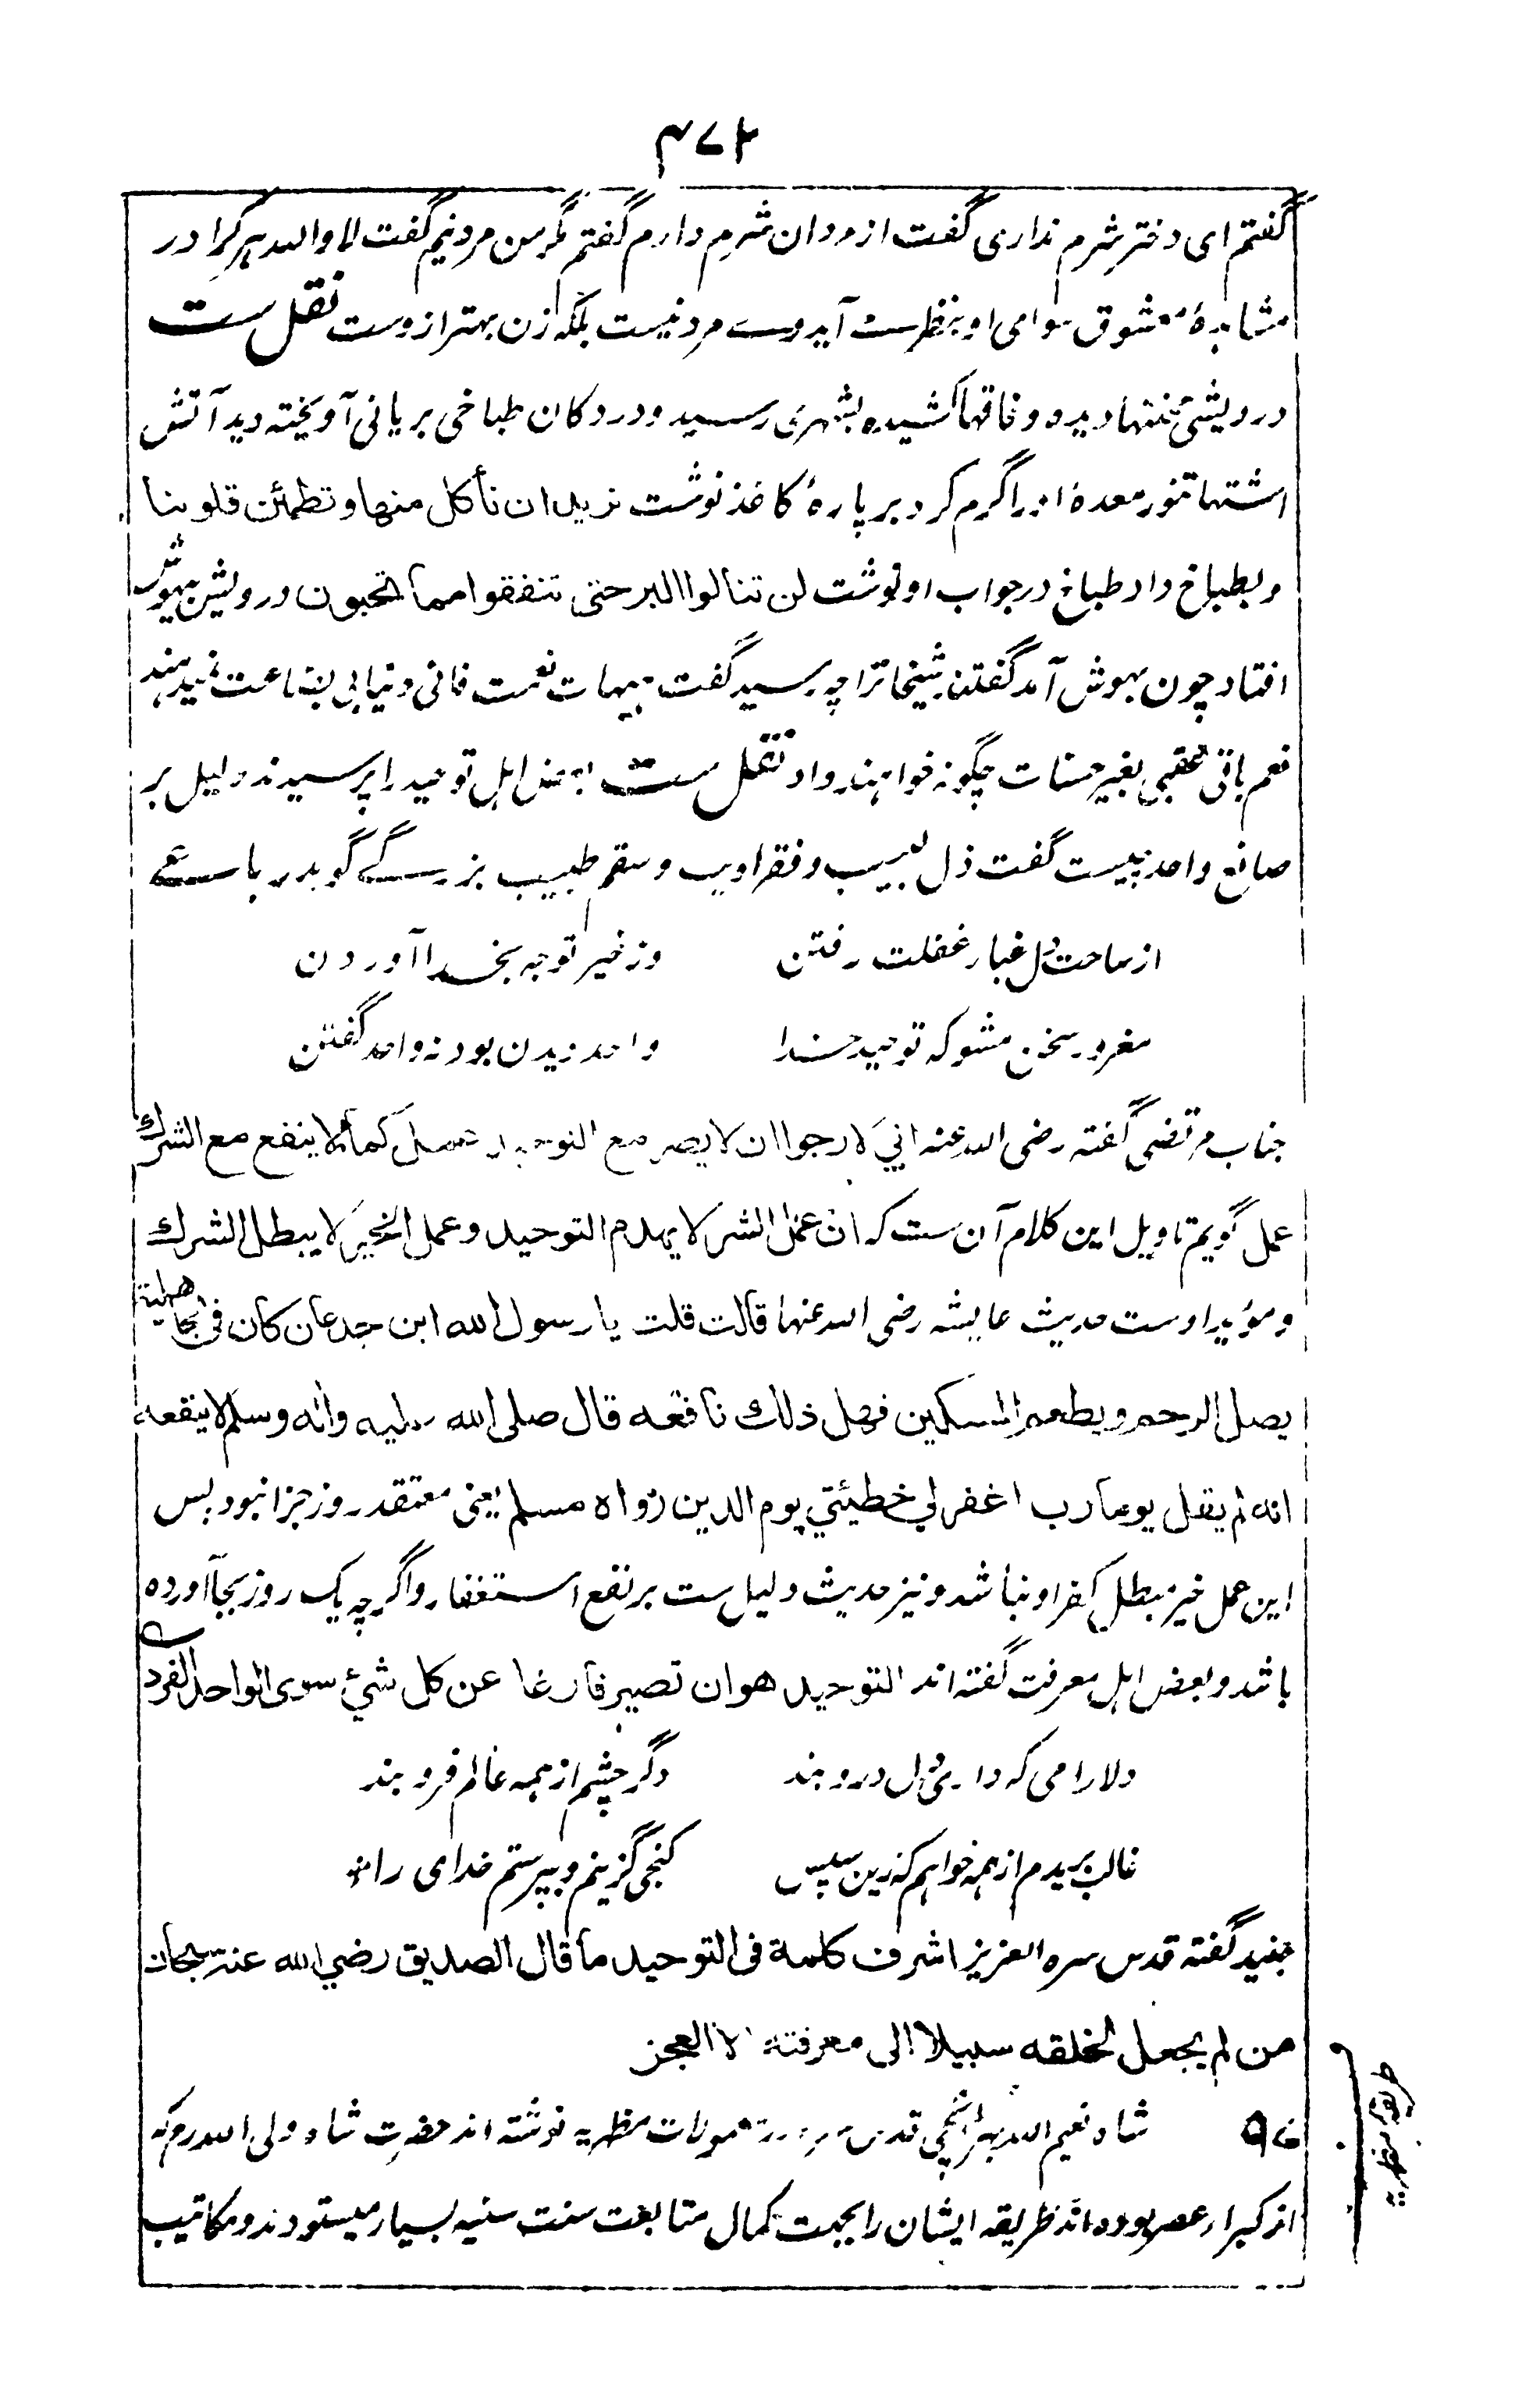 ۴۷۲
گفتم ای دختر شرم نداری گفت از مردان شرم دارم گفتم مگر من مرد نیم گفت لا والله هر کرا در
مشاهدهٔ معشوق سوامی او بنظرست آید وے مرد نیست بلکه زن بهتر ازوست نقل ست
درویشی محنتها دیده و فاقها کشیده بشهری رسید و در دکان طباخی بریانی آویخته دید آتش
اشتها تنور معدهٔ او را گرم کرد بر پارهٔ کاغذ نوشت نرید ان نأکل منها و تطمئن قلوبنا
و بطباخ داد طباخ در جواب او نوشت لن تنالوا البر حتی تنفقوا مما تحبون درویش بیهوش
افتاد چون بهوش آمد گفتند شیخا ترا چه رسید گفت هیهات نعمت فانی دنیا بی بضاعت نمیدهند
نعم باقی عقبی بغیر حسنات چگونه خواهند داد نقل ست بعض اهل توحید را پرسیدند دلیل بر
صانع واحد چیست گفت ذل لبیب و فقر ادیب و سقم طبیب بزرگے گوید رباعے
از ساحت دل غبار غفلت رفتن    وز خیر توجه بخدا آوردن
مغرور سخن مشو که توحید خدا    واحد دیدن بود نه واحد گفتن
جناب مرتضی گفته رضی الله عنه انی لارجو ان لا یضر مع التوحید عمل کما لا ینفع مع الشرک
عمل گویم تاویل این کلام آن ست که ان عمل الشر لا یهدم التوحید و عمل الخیر لا یبطل الشرک
و مؤید اوست حدیث عایشه رضی الله عنها قالت قلت یا رسول الله ابن جدعان کان فی الجاهلیة
یصل الرحم و یطعم المسکین فهل ذلک نافعه قال صلی الله علیه و اله و سلم لا ینفعه
انه لم یقل یوما رب اغفر لی خطیئتی یوم الدین رواه مسلم یعنی معتقد روز جزا نبود پس
این عمل خیر مبطل کفر او نباشد و نیز حدیث دلیل ست بر نفع استغفار و اگرچه یک روز بجا آورده
باشد و بعض اهل معرفت گفته اند التوحید هو ان تصیر فارغا عن کل شیء سوی الواحد الفرد
دلارامی که داری دل درو بند    دگر چشم از همه عالم فرو بند
غالب بریدم از همه خواهم که زین سپس    کنجی گزینم و بپرستم خدای را
جنید گفته قدس سره العزیز اشرف کلمة فی التوحید ما قال الصدیق رضی الله عنه سبحان
من لم یجعل لخلقه سبیلا الی معرفته الا العجز
شاه نعیم الله بهرائچی قدس سره در معمولات مظهریه نوشته اند حضرت شاه ولی الله رح که
از کبراء عصر بوده اند طریقه ایشان را بجهت کمال متابعت سنت سنیه بسیار میستودند و مکاتیب
طریقه مظهریه